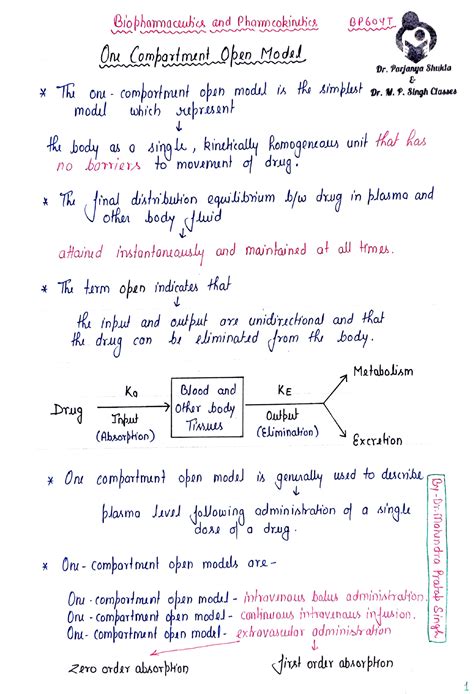 Biopharmaceutics and Pharmcokinetics BP604T
One Compartment Open Model
Dr. Parjanya Shukla
&
Dr. M. P. Singh Classes
* The one-compartment open model is the simplest
model which represent
↓
the body as a single, kinetically homogeneous unit that has
no barriers to movement of drug.
* The final distribution equilibrium b/w drug in plasma and
other body fluid
↓
attained instantaneously and maintained at all times.
* The term open indicates that
↓
the input and output are unidirectional and that
the drug can be eliminated from the body.
Drug
Ka
Input
(Absorption)
Blood and
Other body
Tissues
KE
Output
(Elimination)
Metabolism
Excretion
* One compartment open model is generally used to describe
↓
plasma level following administration of a single
dose of a drug.
* One-compartment open models are -
One-compartment open model - intravenous bolus administration.
One-compartment open model - continuous intravenous infusion.
One-compartment open model - extravascular administration
Zero order absorption
first order absorption
By-Dr. Mahendra Pratap Singh
1